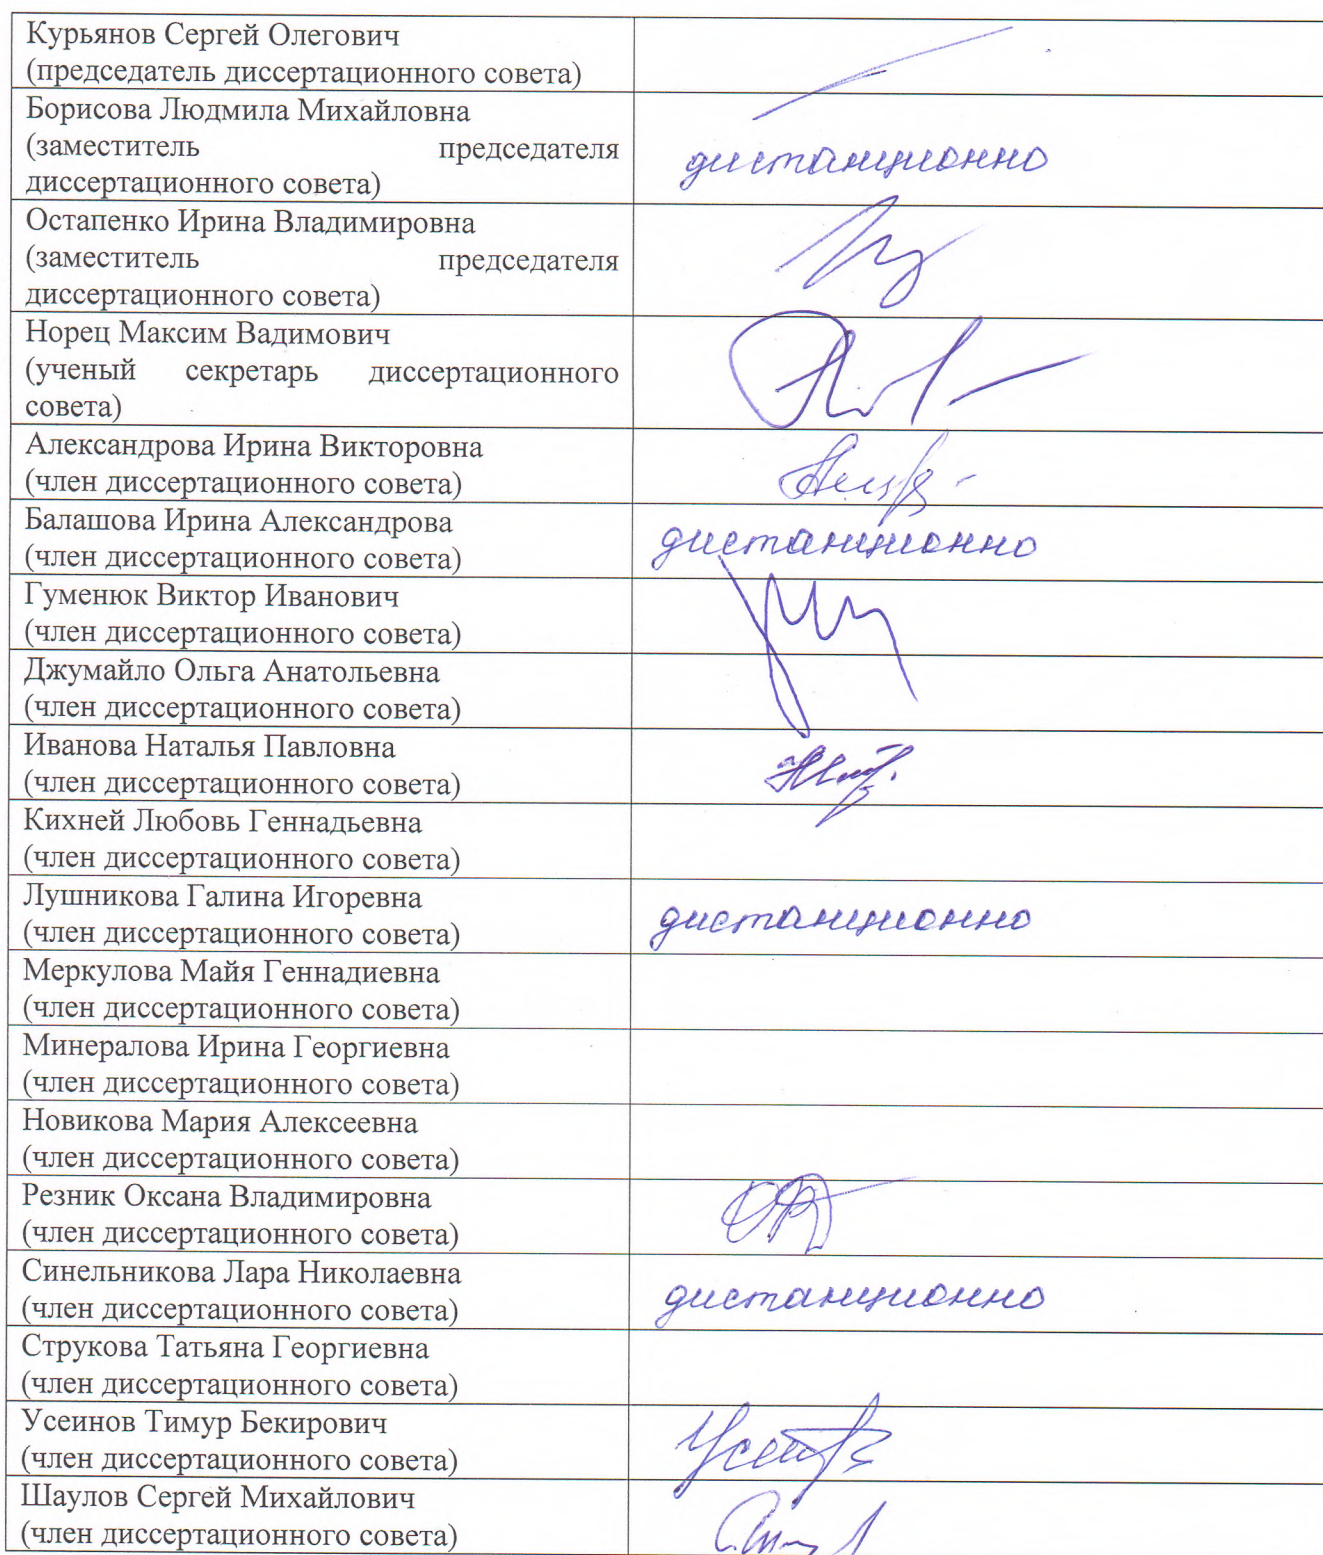 Курьянов Сергей Олегович
(председатель диссертационного совета)
Борисова Людмила Михайловна
(заместитель председателя
диссертационного совета)
дистанционно
Остапенко Ирина Владимировна
(заместитель председателя
диссертационного совета)
Норец Максим Вадимович
(ученый секретарь диссертационного
совета)
Александрова Ирина Викторовна
(член диссертационного совета)
Балашова Ирина Александрова
(член диссертационного совета)
дистанционно
Гуменюк Виктор Иванович
(член диссертационного совета)
Джумайло Ольга Анатольевна
(член диссертационного совета)
Иванова Наталья Павловна
(член диссертационного совета)
Кихней Любовь Геннадьевна
(член диссертационного совета)
Лушникова Галина Игоревна
(член диссертационного совета)
дистанционно
Меркулова Майя Геннадиевна
(член диссертационного совета)
Минералова Ирина Георгиевна
(член диссертационного совета)
Новикова Мария Алексеевна
(член диссертационного совета)
Резник Оксана Владимировна
(член диссертационного совета)
Синельникова Лара Николаевна
(член диссертационного совета)
дистанционно
Струкова Татьяна Георгиевна
(член диссертационного совета)
Усеинов Тимур Бекирович
(член диссертационного совета)
Шаулов Сергей Михайлович
(член диссертационного совета)